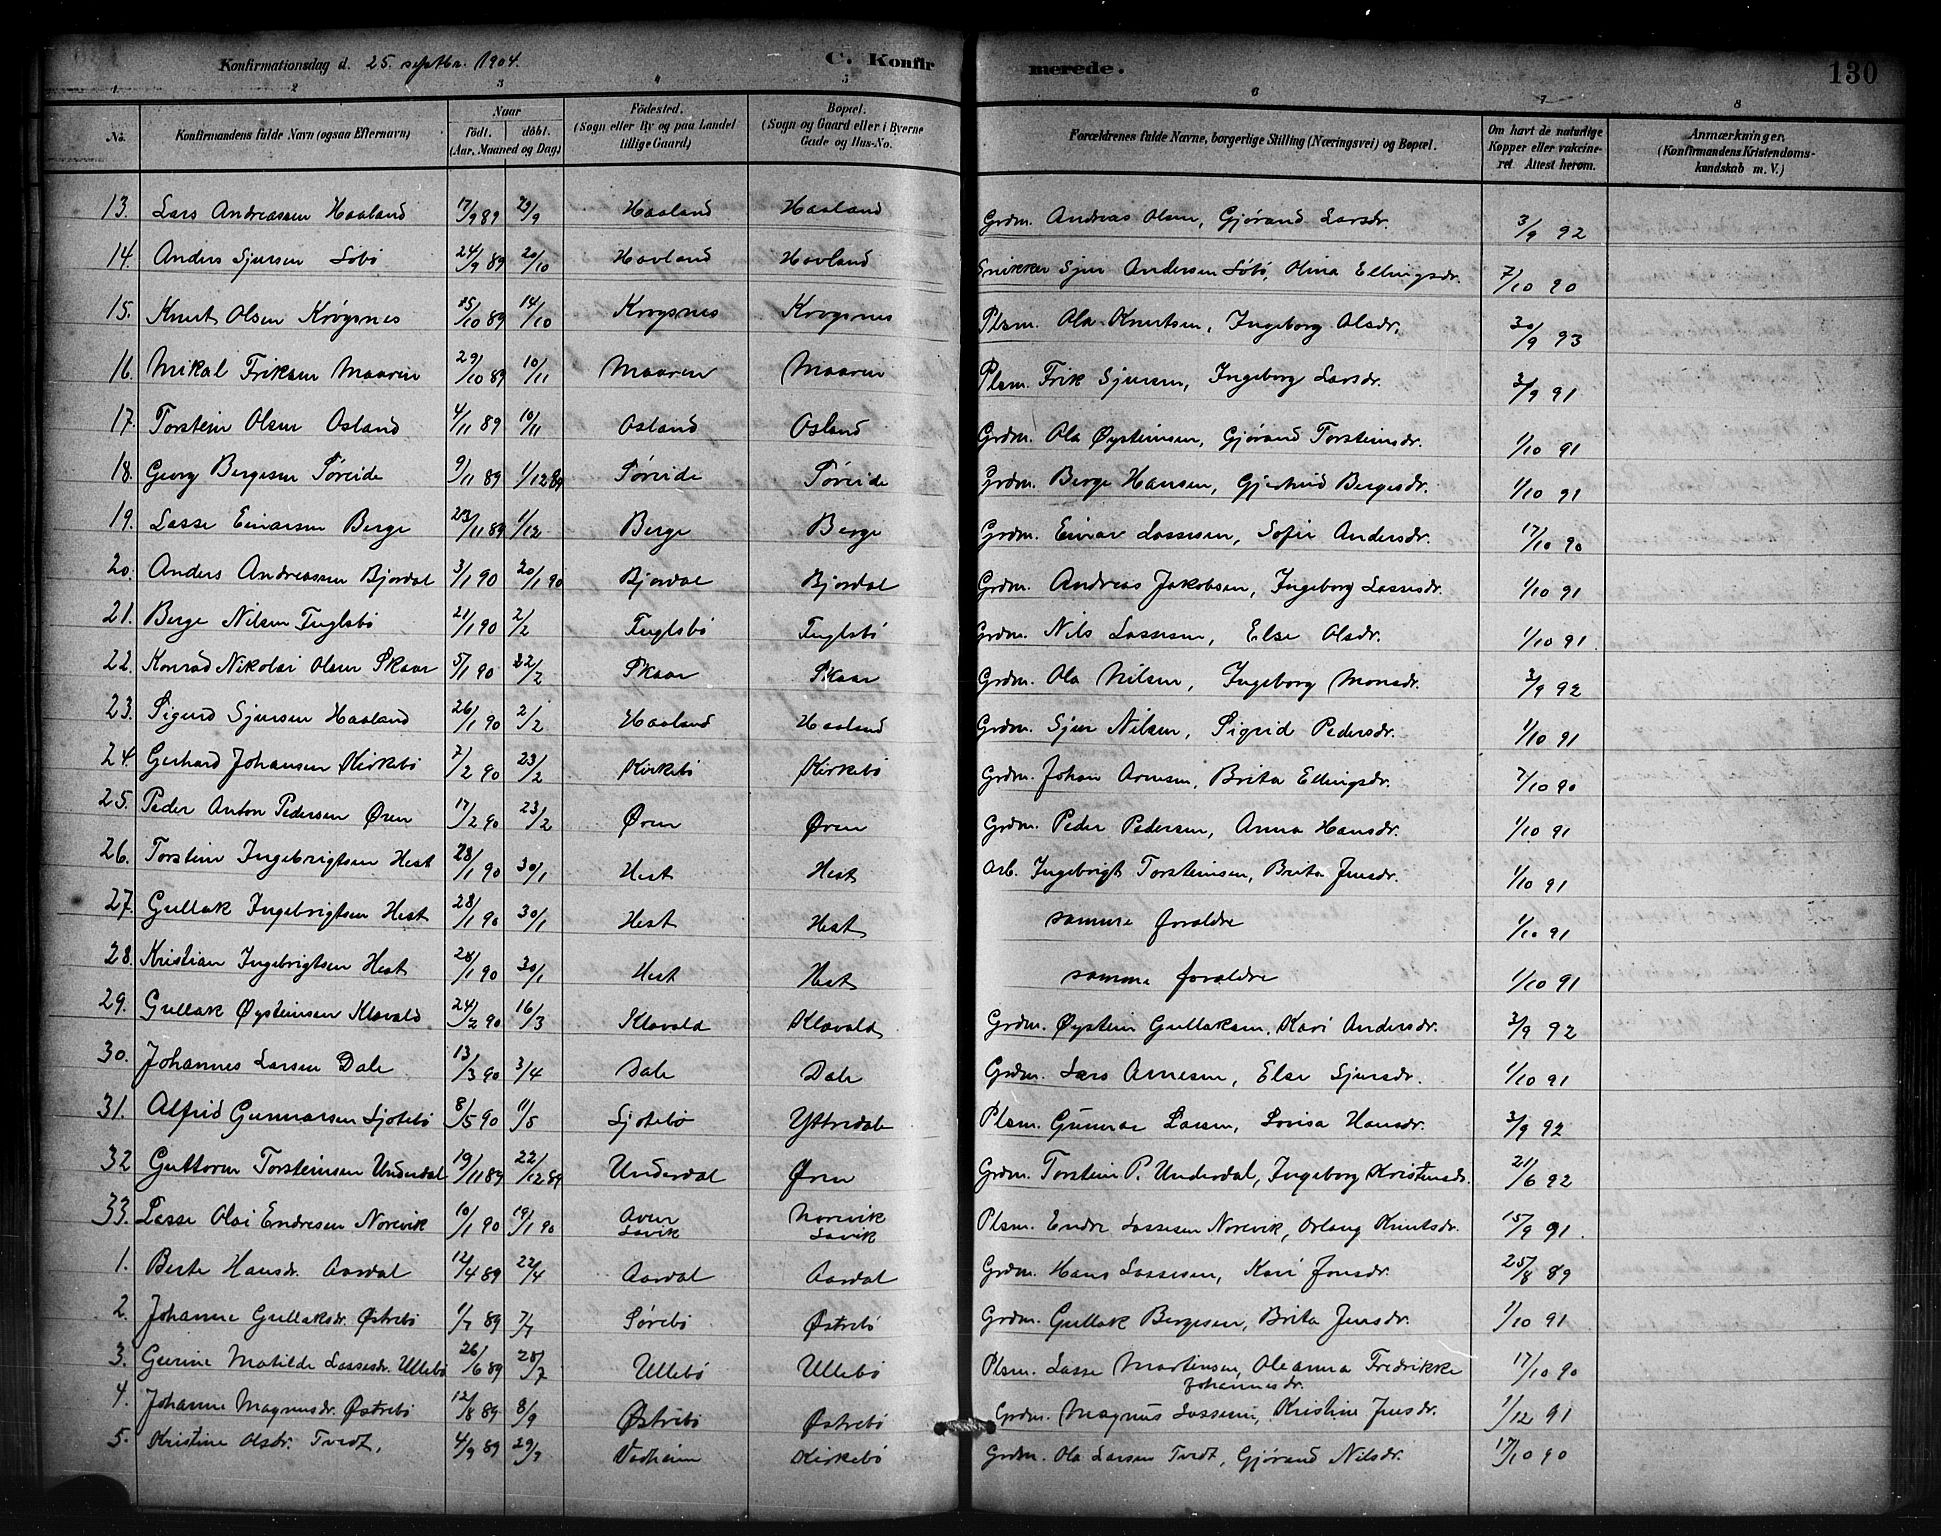 Konfirmationsdag d. 25. septbr. 1904.
C. Konfirmerede.
130
1 2 3 4 5 6 7 8
No. Konfirmandens fulde Navn (ogsaa Efternavn) Naar födt. döbt. (Aar, Maaned og Dag) Födested. (Sogn eller By og paa Landet tillige Gaard) Bopæl. (Sogn og Gaard eller i Byerne Gade og Hus-No. Forældrenes fulde Navne, borgerlige Stilling (Næringsvei) og Bopæl. Om havt de naturlige Kopper eller vakcineret. Attest herom. Anmærkninger. (Konfirmandens Kristendomskundskab m. V.)
13. Lars Andreassen Haaland 17/9 89 29/9 Haaland Haaland Grdm. Andreas Olsen, Gjørand Larsdr. 3/9 92
14. Anders Sjursen Söbö 24/9 89 20/10 Hovland Hovland Snikker Sjur Andersen Söbö, Olina Ellingsdr. 7/10 90
15. Knut Olsen Krogsnes 10 89 14/10 Krogsnes Krogsnes Plsm. Ola Knutsen, Ingeborg Olsdr. 30/9 93
16. Mikal Eriksen Maaren 29/10 89 10/11 Maaren Maaren Plsm. Erik Sjursen, Ingeborg Larsdr. 3/9 91
17. Torstein Olsen Osland 4/11 89 10/11 Osland Osland Grdm. Ola Øysteinsen, Gjørand Torsteinsdr. 1/10 91
18. Georg Bergesen Søreide 9/11 89 1/12 89 Søreide Søreide Grdm. Berge Hansen, Gjertrud Bergesdr. 1/10 91
19. Lasse Einarsen Berge 23/11 89 1/12 Berge Berge Grdm. Einar Lassesen, Sofie Andersdr. 17/10 90
20. Anders Andreassen Bjordal 3/1 90 20/1 90 Bjordal Bjordal Grdm. Andreas Jakobsen, Ingeborg Lassesdr. 1/10 91
21. Berge Nilsen Fuglsbö 21/1 90 2/2 Fuglsbö Fuglsbö Grdm. Nils Lassesen, Else Olsdr. 1/10 91
22. Konrad Nikolai Olsen Skaar 5/1 90 22/2 Skaar Skaar Grdm. Ola Nilsen, Ingeborg Monsdr. 3/9 92
23. Sigurd Sjursen Haaland 26/1 90 2/2 Haaland Haaland Grdm. Sjur Nilsen, Sigrid Pedersdr. 1/10 91
24 Gerhard Johansen Kirkebö 7/2 90 23/2 Kirkebö Kirkebö Grdm. Johan Arnesen, Brita Ellingsdr. 7/10 90
25. Peder Anton Pedersen Øren 17/2 90 23/2 Øren Øren Grdm. Peder Pedersen, Anna Hansdr. 1/10 91
26. Torstein Ingebrigtsen Hest 28/1 90 30/1 Hest Hest Arb. Ingebrigt Torsteinsen, Brita Jensdr. 1/10 91
27. Gullak Ingebrigtsen Hest 28/1 90 30/1 Hest Hest samme foraldre 1/10 91
28. Kristian Ingebrigtsen Hest 28/1 90 30/1 Hest Hest samme foraldre 1/10 91
29. Gullak Øysteinsen Klævold 24/2 90 16/3 Klævold Klævold Grdm. Øystein Gullaksen, Kari Andersdr. 3/9 92
30. Johannes Larsen Dale 13/3 90 3/4 Dale Dale Grdm. Lars Arnesen, Else Sjursdr. 1/10 91
31. Alfrid Gunnarsen Ljotebö 8/5 90 11/5 Ljotebö Yttredale Plsm. Gunnar Larsen, Lovisa Hansdr. 3/9 92
32 Guttorm Torsteinsen Underdal 19/11 89 22/12 89 Underdal Øren Grdm. Torstein P. Underdal, Ingeborg Kristensdr. 21/6 92
33. Lasse Olai Endresen Norevik 10/1 90 19/1 90 Lavik Norevik Lavik Plsm. Endre Lassesen Norevik, Orlaug Knutsdr. 15/9 91.
1. Berte Hansdr. Aardal 12/4 89 22/4 Aardal Aardal Grdm. Hans Lassesen, Kari Jonsdr. 25/8 89
2. Johanne Gullaksdr. Østrebö 1/7 89 7/7 Sørebö Østrebö Grdm. Gullak Bergesen, Brita Jensdr. 1/10 91
3. Gurine Matilde Lassesdr. Ullebö 26/6 89 28/7 Ullebö Ullebö Plsm. Lasse Martinsen, Oleanna Fredrikke Johannesdr. 17/10 90
4. Johanne Magnusdr. Østrebö 12/8 89 8/9 Østrebö Østrebö Grdm. Magnus Lassesen, Kristine Jensdr. 1/12 91
5. Kristine Olsdr. Tvedt, 4/9 89 29/9 Vadheim Kirkebö Grdm. Ola Larsen Tvedt, Gjørand Nilsdr. 17/10 90